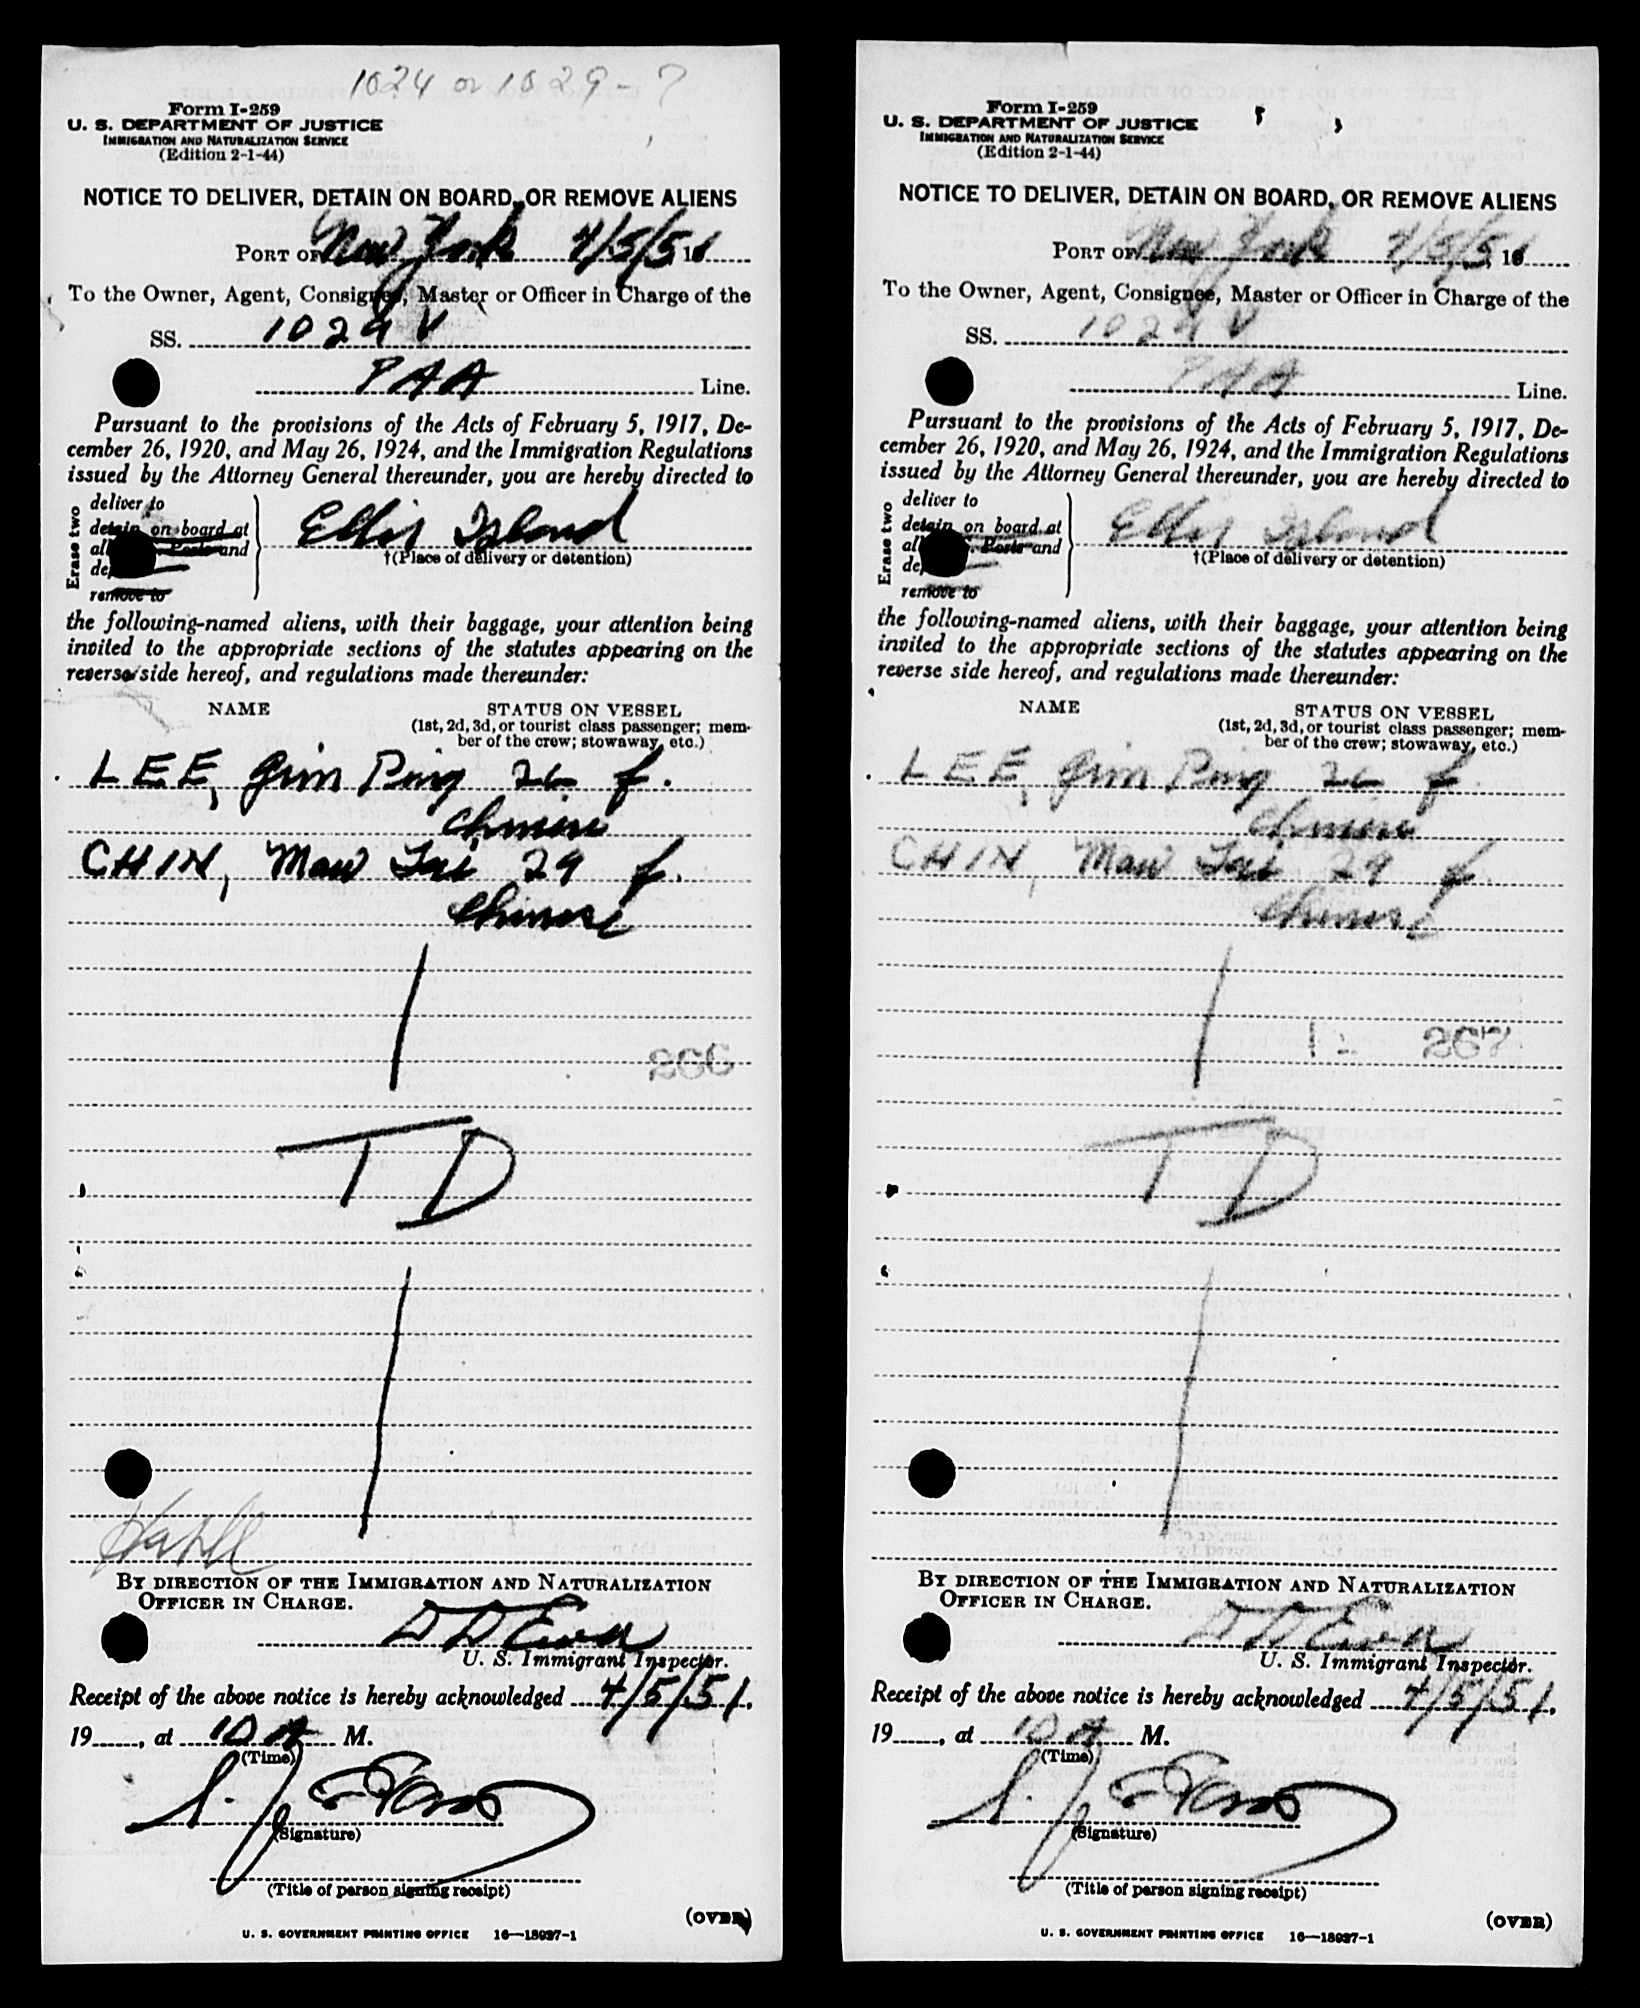 1024 or 1029 - ?
Form I-259
U. S. DEPARTMENT OF JUSTICE
IMMIGRATION AND NATURALIZATION SERVICE
(Edition 2-1-44)
NOTICE TO DELIVER, DETAIN ON BOARD, OR REMOVE ALIENS
PORT OF New York 4/5/51
To the Owner, Agent, Consignee, Master or Officer in Charge of the
SS. 1029 V
PAA Line.
Pursuant to the provisions of the Acts of February 5, 1917, De-
cember 26, 1920, and May 26, 1924, and the Immigration Regulations
issued by the Attorney General thereunder, you are hereby directed to
Erase two
deliver to
detain on board at
and
remove to
Ellis Island
†(Place of delivery or detention)
the following-named aliens, with their baggage, your attention being
invited to the appropriate sections of the statutes appearing on the
reverse side hereof, and regulations made thereunder:
NAME STATUS ON VESSEL
(1st, 2d, 3d, or tourist class passenger; mem-
ber of the crew; stowaway, etc.)
LEE, Gim Ping 26 f.
Chinese
CHIN, Maw Toi 29 f.
Chinese
266
TD
BY DIRECTION OF THE IMMIGRATION AND NATURALIZATION
OFFICER IN CHARGE.
U. S. Immigrant Inspector.
Receipt of the above notice is hereby acknowledged 4/5/51,
19____, at 10 A M.
(Time)
(Signature)
(Title of person signing receipt)
(OVER)
U. S. GOVERNMENT PRINTING OFFICE 16—18937-1
Form I-259
U. S. DEPARTMENT OF JUSTICE
IMMIGRATION AND NATURALIZATION SERVICE
(Edition 2-1-44)
NOTICE TO DELIVER, DETAIN ON BOARD, OR REMOVE ALIENS
PORT OF New York 4/5/51
To the Owner, Agent, Consignee, Master or Officer in Charge of the
SS. 1029 V
PAA Line.
Pursuant to the provisions of the Acts of February 5, 1917, De-
cember 26, 1920, and May 26, 1924, and the Immigration Regulations
issued by the Attorney General thereunder, you are hereby directed to
Erase two
deliver to
detain on board at
and
remove to
Ellis Island
†(Place of delivery or detention)
the following-named aliens, with their baggage, your attention being
invited to the appropriate sections of the statutes appearing on the
reverse side hereof, and regulations made thereunder:
NAME STATUS ON VESSEL
(1st, 2d, 3d, or tourist class passenger; mem-
ber of the crew; stowaway, etc.)
LEE, Gim Ping 26 f.
Chinese
CHIN, Maw Toi 29 f
Chinese
267
TD
BY DIRECTION OF THE IMMIGRATION AND NATURALIZATION
OFFICER IN CHARGE.
U. S. Immigrant Inspector.
Receipt of the above notice is hereby acknowledged 4/5/51,
19____, at 10 A M.
(Time)
(Signature)
(Title of person signing receipt)
(OVER)
U. S. GOVERNMENT PRINTING OFFICE 16—18937-1